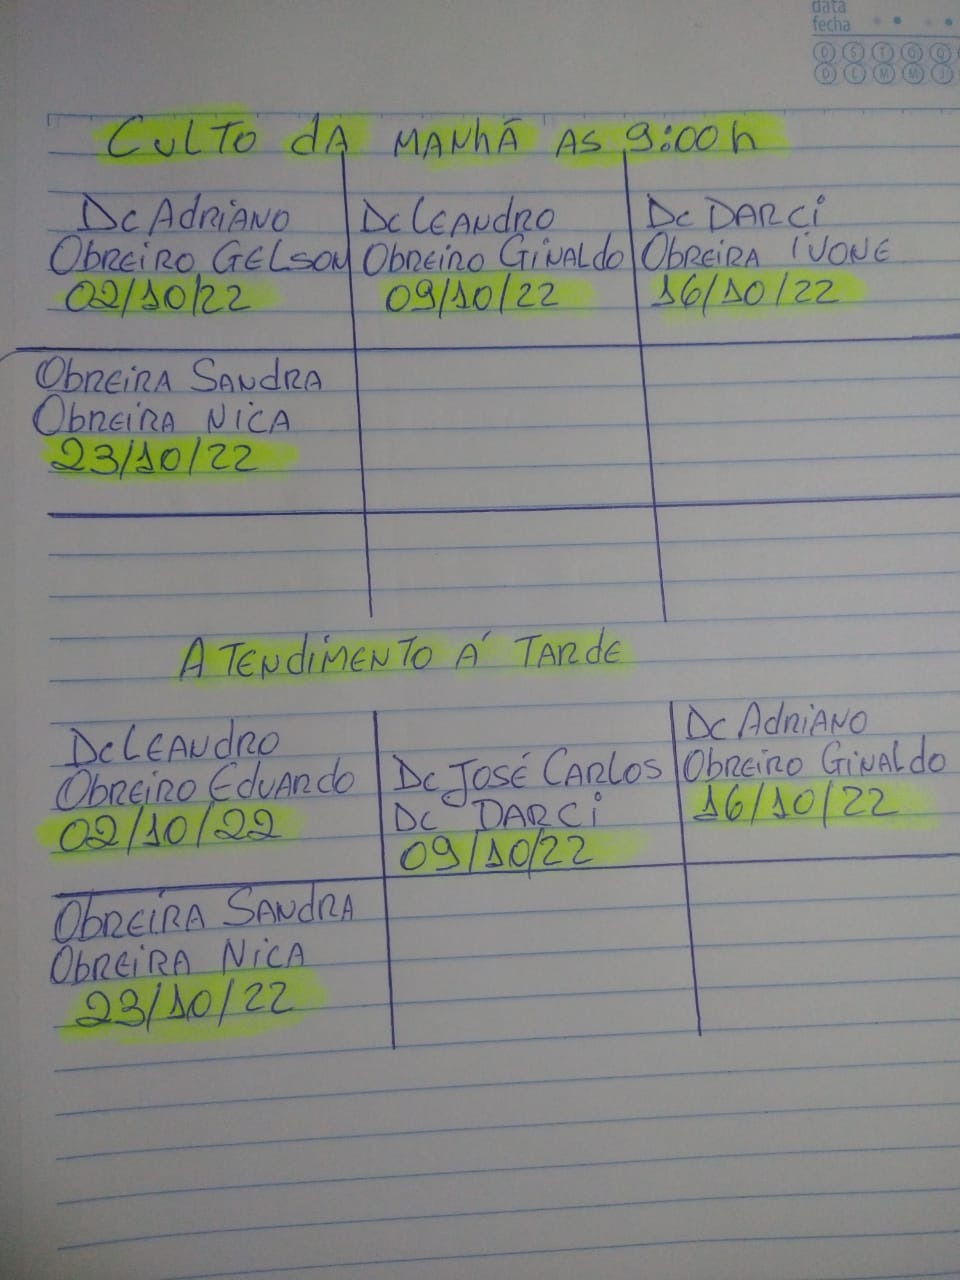 data
fecha
D S T Q Q
D L M M J
CULTO DA MANHÃ AS 9:00h
Dc ADRIANO
OBREIRO GELSON
02/10/22
Dc LEANDRO
OBREIRO GINALDO
09/10/22
Dc DARCI
OBREIRA IVONE
16/10/22
OBREIRA SANDRA
OBREIRA NICA
23/10/22
ATENDIMENTO Á TARDE
Dc LEANDRO
OBREIRO EDUARDO
02/10/22
Dc JOSÉ CARLOS
Dc DARCI
09/10/22
Dc ADRIANO
OBREIRO GINALDO
16/10/22
OBREIRA SANDRA
OBREIRA NICA
23/10/22